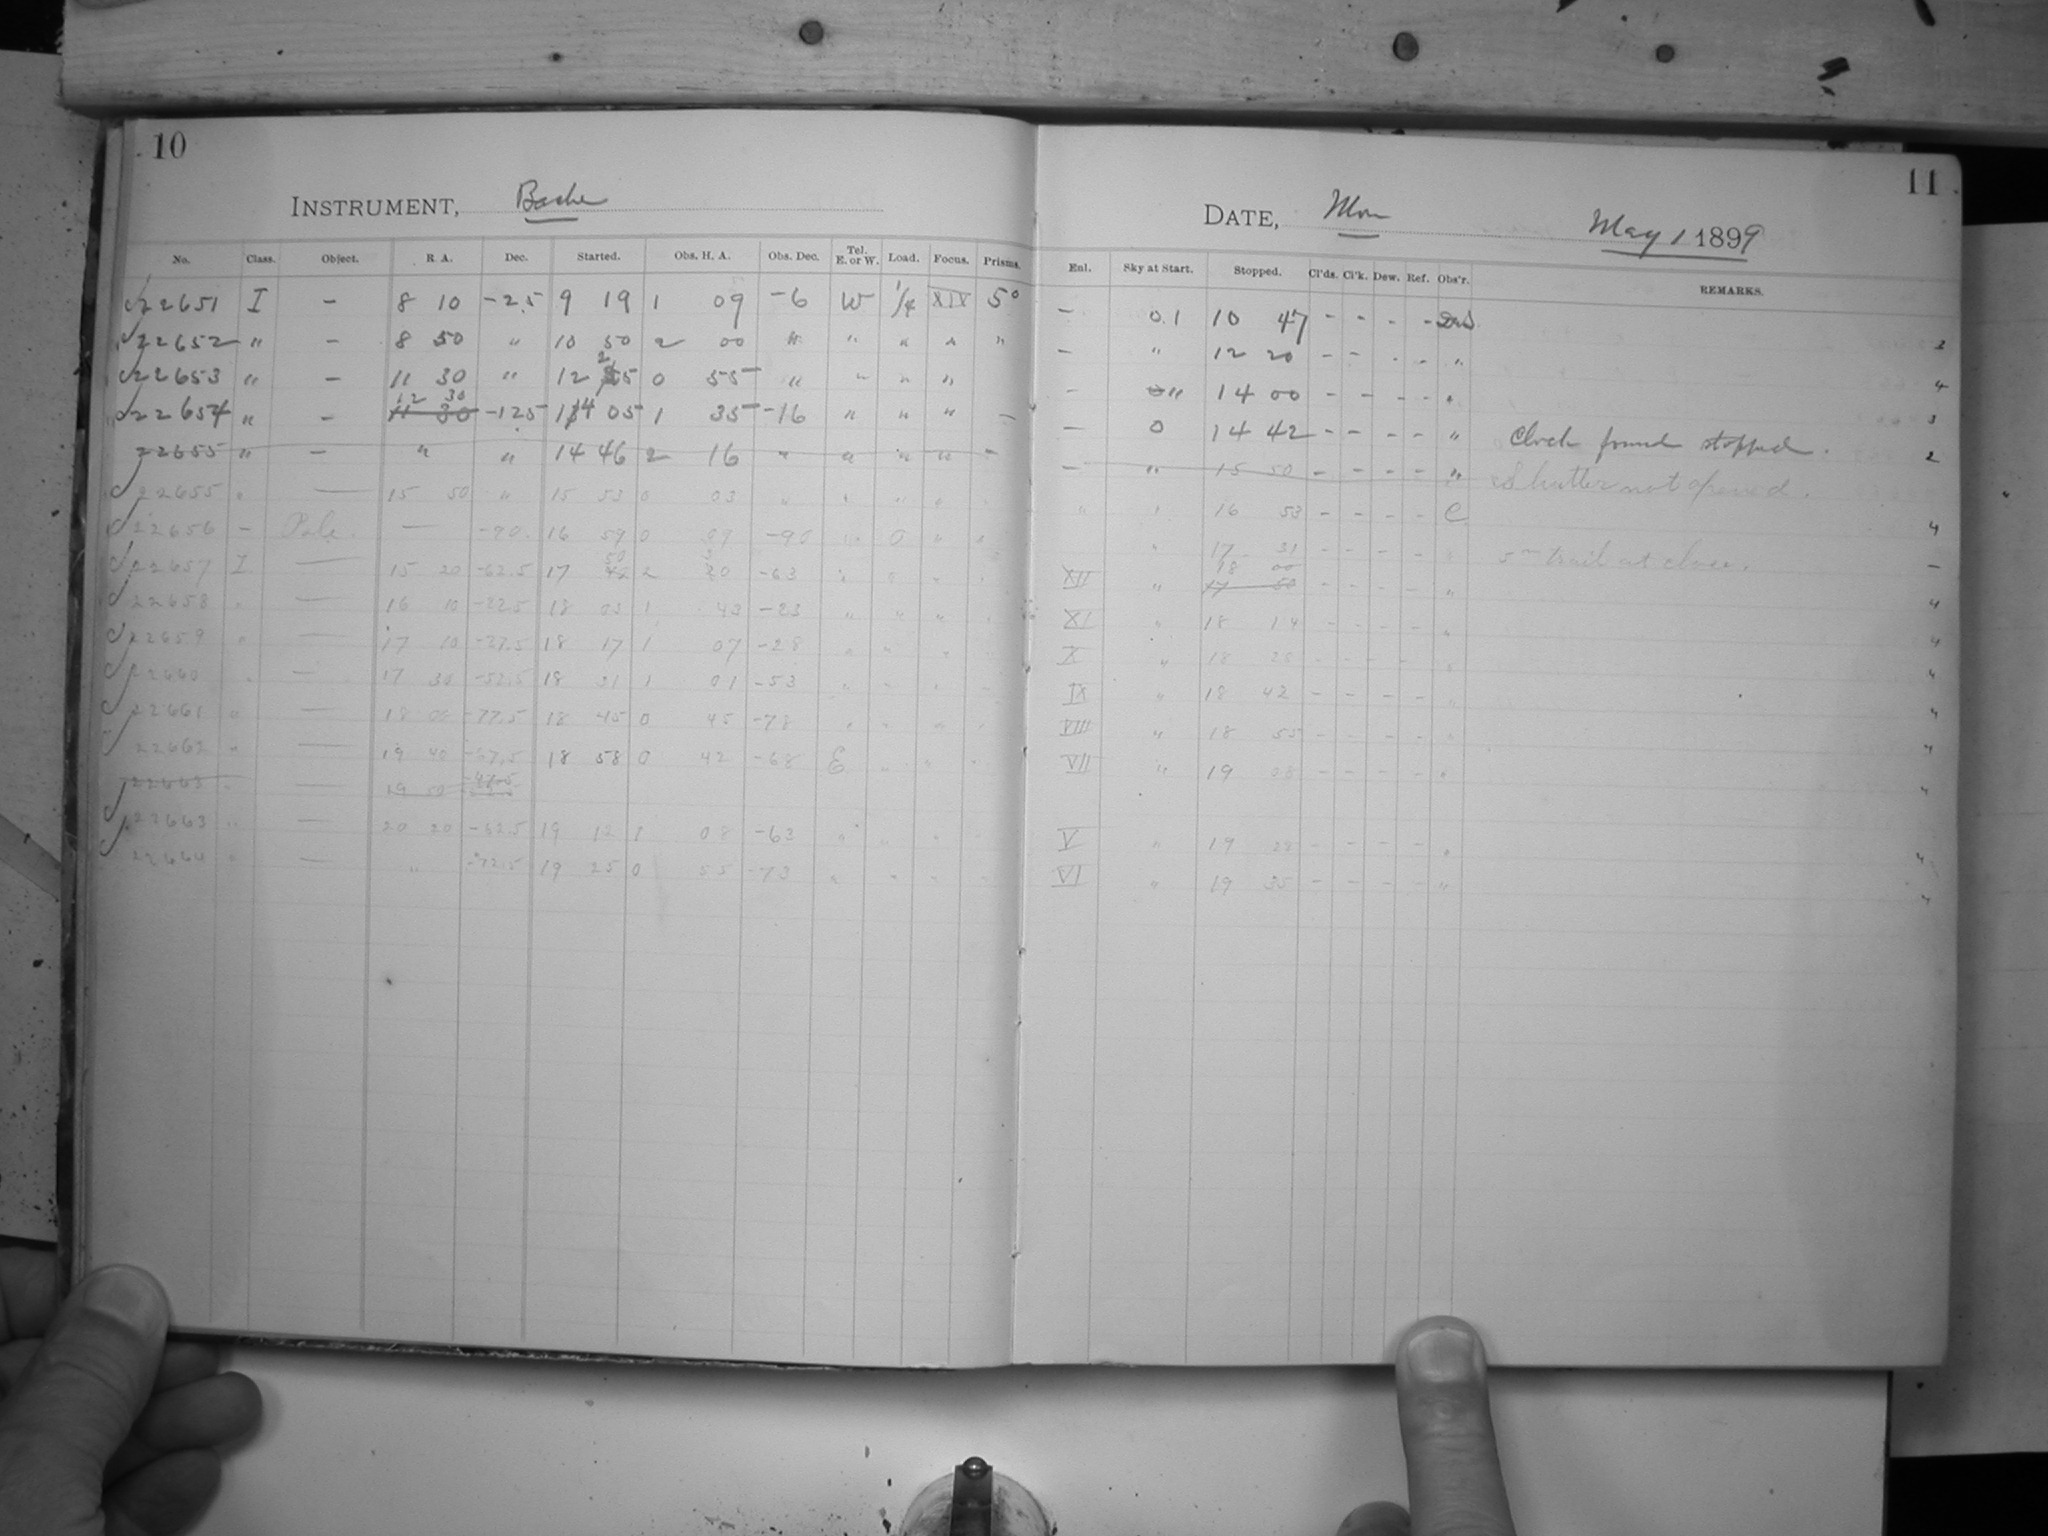 10
INSTRUMENT, Bache
No. Class. Object. R. A. Dec. Started. Obs. H. A. Obs. Dec. Tel. E. or W. Load. Focus. Prisms.
22651 I - 8 10 -2.5 9 19 1 09 -6 W 1/4 XIV 5°
22652 " - 8 50 " 10 50 2 00 " " " " "
22653 " - 11 30 " 12 25 0 55 " " " "
22654 " - 12 30 -12.5 14 05 1 35 -16 " " " -
22655 " - " " 14 46 2 16 " " " " -
22655 " — 15 50 " 15 53 0 03 " " " "
22656 - Pole. — -90. 16 59 0 09 -90 " 0 " "
22657 I — 15 20 -62.5 17 50 2 30 -63 " " " "
22658 " — 16 10 -22.5 18 03 1 43 -23 " " " "
22659 " — 17 10 -27.5 18 17 1 07 -28 " " " "
22660 " — 17 30 -52.5 18 31 1 01 -53 " " " "
22661 " — 18 00 -77.5 18 45 0 45 -78 " " " "
22662 " — 19 40 -67.5 18 58 0 42 -68 E " " "
22663 " — 19 50 -47.5
22663 " — 20 20 -62.5 19 12 1 08 -63 " " "
22664 " — " -72.5 19 25 0 55 -73 " " " "
11
DATE, Mon May 1 1899
Enl. Sky at Start. Stopped. Cl'ds. Cl'k. Dew. Ref. Obs'r. REMARKS.
- 0.1 10 47 - - - -
- " 12 20 - - - - " 3
- " 14 00 - - - - " 4
- 0 14 42 - - - - " Clock found stopped. 3
- " 15 50 - - - - " Shutter not opened. 2
" " 16 53 - - - - C
" 17 31 - - - - " 5m trail at close. 4
XII " 18 00 - - - - " -
XI " 18 14 - - - - " 4
X " 18 28 - - - - " 4
IX " 18 42 - - - - " 4
VIII " 18 55 - - - - " 4
VII " 19 08 - - - - " 4
V " 19 22 - - - - "
VI " 19 35 - - - - " 4